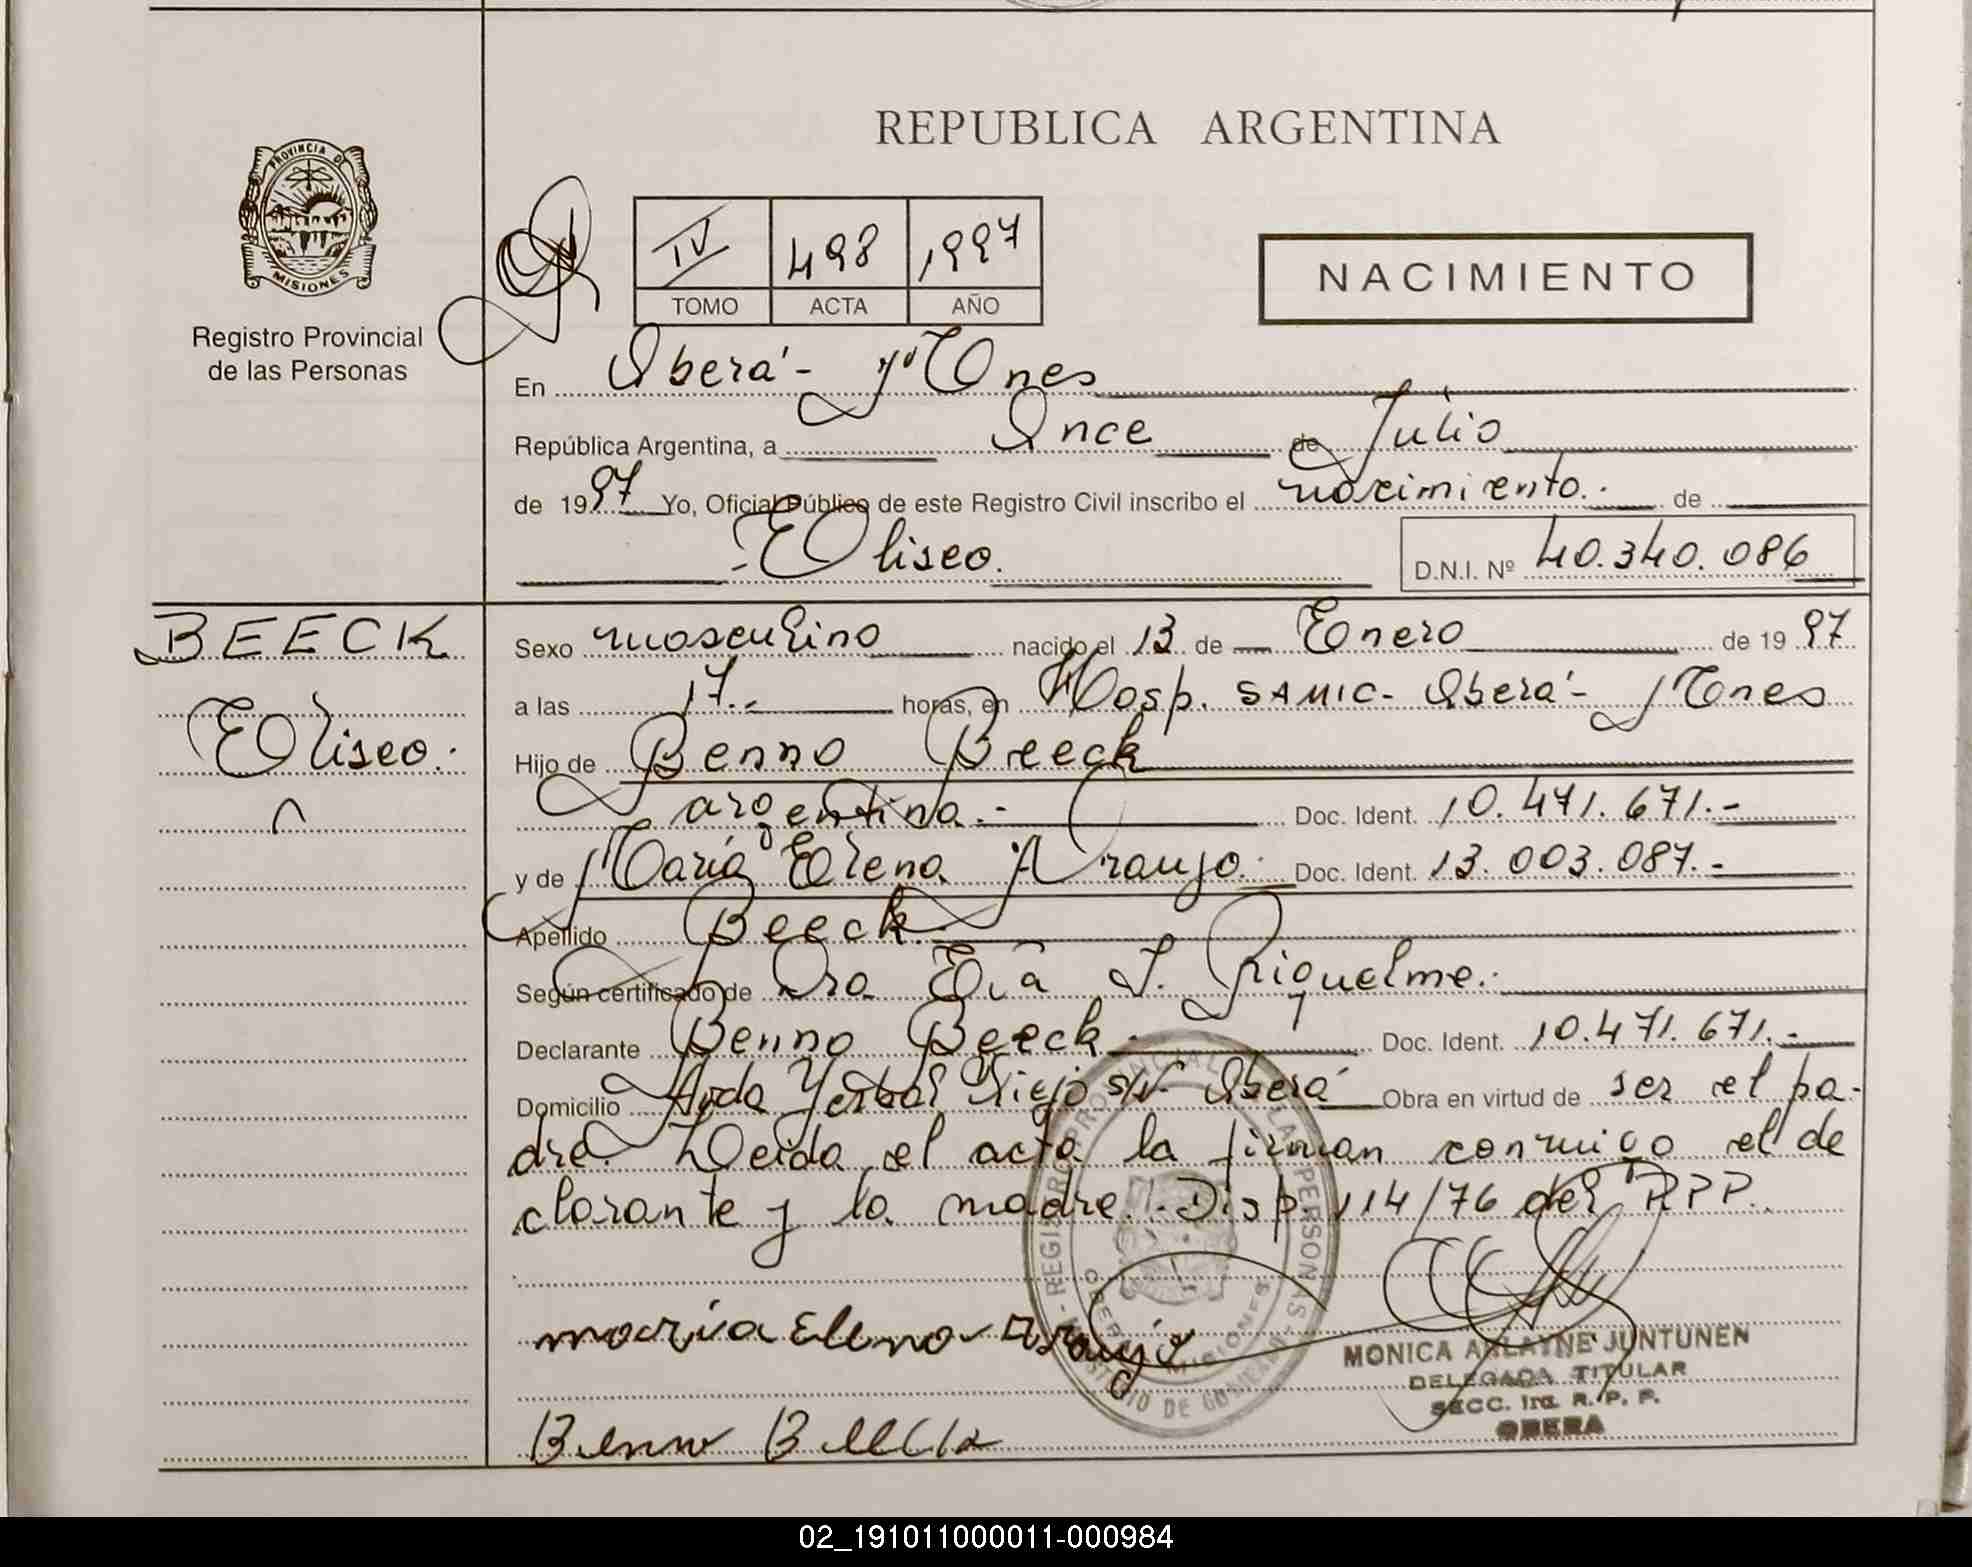 REPUBLICA ARGENTINA
PROVINCIA DE
MISIONES
Registro Provincial
de las Personas
IV 498 1997
TOMO ACTA AÑO
NACIMIENTO
En Oberá - Mnes
República Argentina, a Once de Julio
de 1997 Yo, Oficial Público de este Registro Civil inscribo el nacimiento. de
- Eliseo. D.N.I. Nº 40.340.086
BEECK
Eliseo.
Sexo masculino nacido el 13 de Enero de 1997
a las 17.- horas, en Hosp. SAMIC - Oberá - Mnes
Hijo de Benno Beeck
argentina.- Doc. Ident. 10.471.671.-
y de María Elena Araujo. Doc. Ident. 13.003.087.-
Apellido Beeck.
Según certificado de Dra Eva I. Riquelme.
Declarante Benno Beeck. Doc. Ident. 10.471.671.-
Domicilio Avda Yerbal Viejo s/Nº Oberá Obra en virtud de ser el pa-
dre. Leida el acta la firman conmigo el de
clarante y la madre. Disp. 114/76 del RPP.
maria Elena Araujo
MONICA ARLAYNE JUNTUNEN
DELEGADA TITULAR
SECC. 1ra. R. P. P.
OBERA
Benno Beeck
02_191011000011-000984